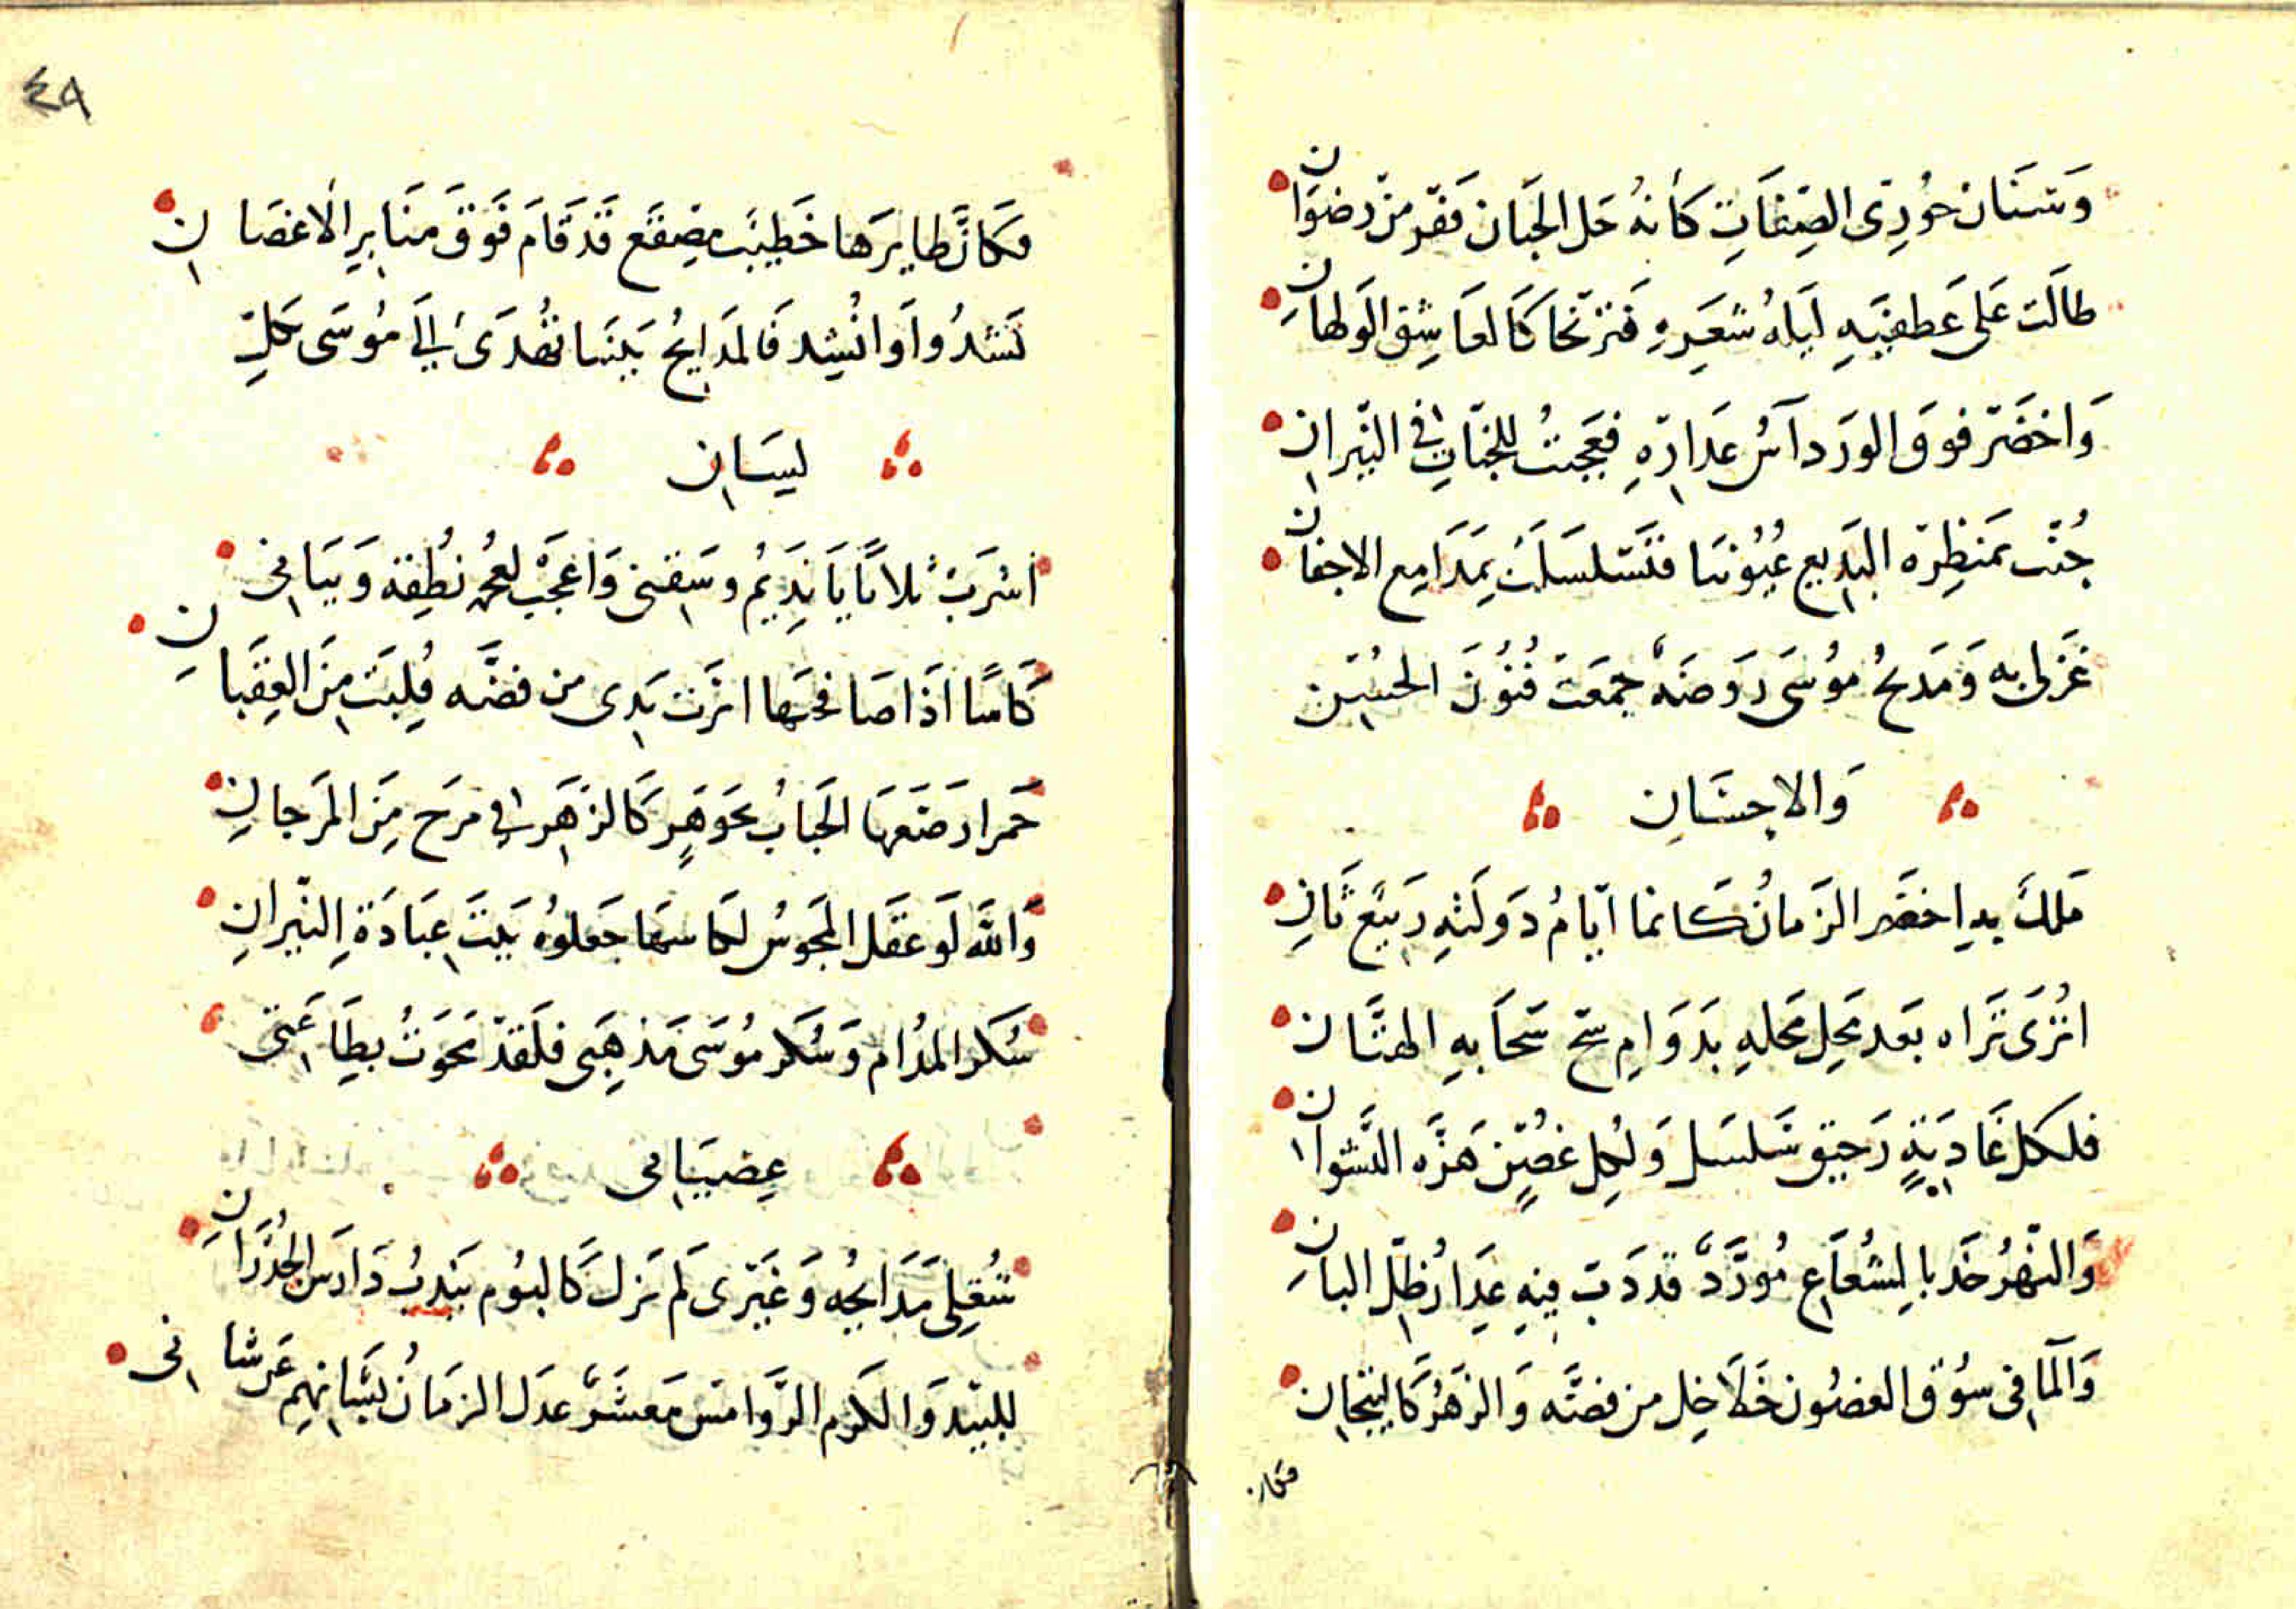 وَسنَان حُورِى الصِّفَاتِ كَأنهُ حَل الجَنان فَفر مِن رضوَان
طالَت عَلى عَطفَيهِ لَيله شَعرِهِ فَترنحا كَالعَاشِق الوَلهانِ
وَاخضَر فوقَ الورَد آسُ عَدارِهِ فعَجبتُ للجَنّاتِ في النّيرانِ
جُنّت بمَنظِره البَدِيع عُيُوننا فتَسَلسَلَت بِمَدَامِع الاجفان
غَزلى به وَمَديحُ مُوسَى رَوضَهٌ جمَعَت فُنُونَ الحُسنِ
وَالاحسَانِ
مَلكٌ بهِ اخضَر الزَمانُ كَانما ايّامُ دَولَتهِ رَبيعٌ ثَانِ
اثرَى ثَراه بعَد مَحِل مَحلهِ بدَوَامِ سَحِّ سَحَابهِ الهتَّان
فلكل غَادِيَةٍ رَحيق سَلسَل وَلِكل غصُنٍ هَزَّه النَّشوان
وَالنّهرُ خَد بالِشُعَاعِ مُورَّدٌ قد دَبّ فِيهِ عِذارُ ظِلّ البانِ
وَالمَا في سُوق الغصُون خَلاخِل من فضَّه وَالزهَرُ كَالتيجان
فكان
٤٩
فكَانَّ طايرَهَا خَطِيبٌ مِصقَع قَد قَامَ فَوقَ مَنَابِرِ الاغصَانِ
نَشدُوا وَانُشِد فَالمَدَايحُ بَينَنا تُهدَى الَى مُوسَى بكلِّ
لِسَان
اشرَبْ ثلاثًا يَا نَدِيمُ وسَقِنى وَاعجَبْ لعُجمِ نُطقِه وَبيَانى
كَاسًا اذَا صَافحَتها اثرَت يَدى من فضَّه قُلِبَت مِنَ العِقيَانِ
حَمرا رَصَّعهَا الحَبابُ بجَوهَرٍ كَالزَهَرِ في مَرَج مِنَ المَرجانِ
وَاللَّه لَو عَقَل المجوسُ لكَاسهَا جَعَلوهُ بَيتَ عِبَادَةِ النّيرانِ
سُكر المدُام وَشُكر مُوسَى مَذهَبِى فلَقدّ مَحَوتُ بِطَاعَتى
عِصيَانى
تُعلِى مَدَايحُه وَغَيرى لَم يَزل كَالبوُم يَندبُ دَارسَ الجُدرَانِ
للبيد وَالكرم الرَّوامس مَعشَرٌ عدَل الزمَانُ بشَانِهِم عَن شانى